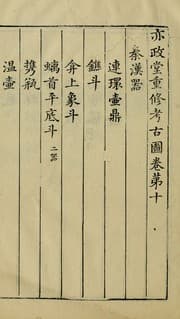 亦政堂重修考古圖卷第十
秦漢器
連環壺鼎
鐎斗
弇上象斗
螭首平底斗二器
携瓶
溫壺